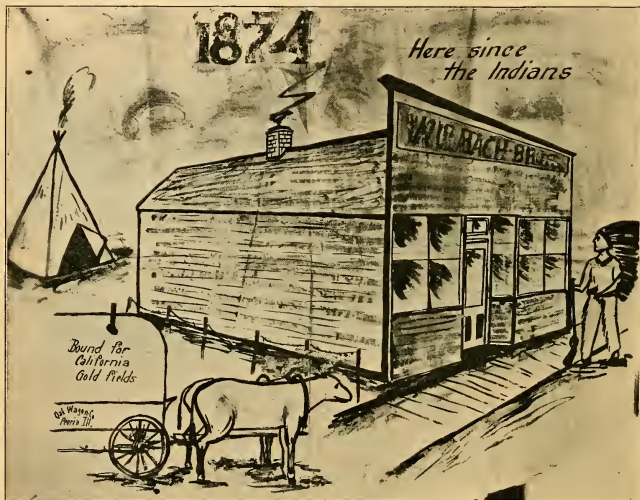 1874
Here since
the Indians
BACH BROS
Bound for
California
Gold fields
Wagon Co
Peoria Ill.